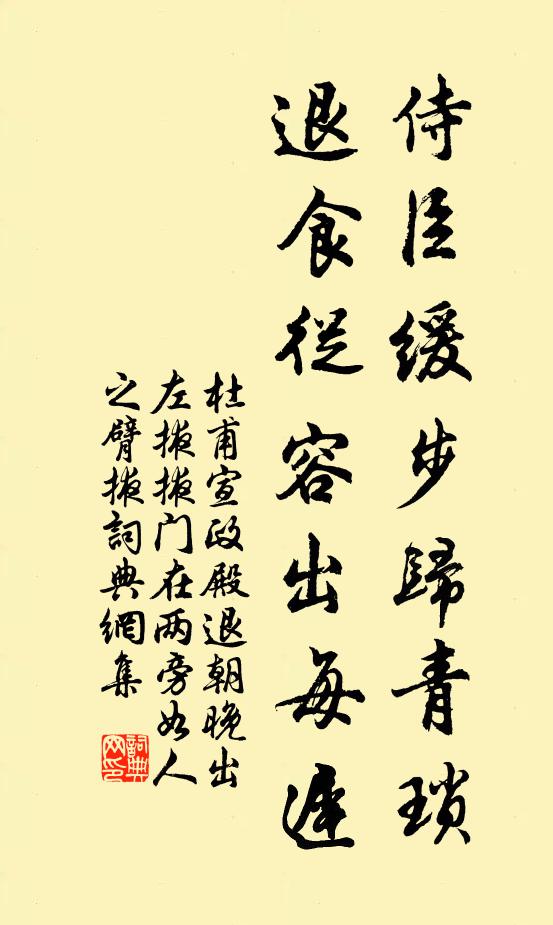 侍臣緩步歸青瑣
退食從容出每遲
杜甫宣政殿退朝晚出
左掖掖门在两旁如人
之臂掖詞典網集
詞典网印